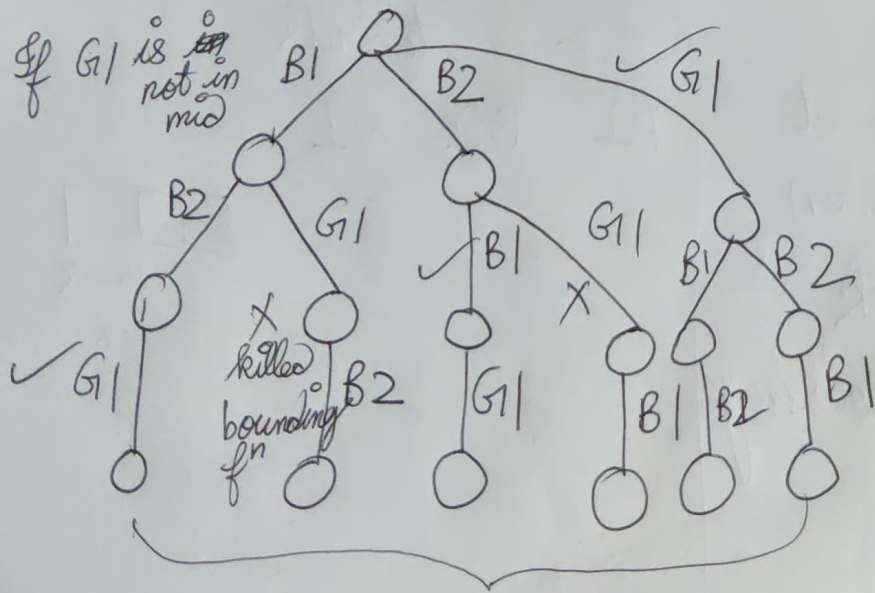 If G1 is in
not in
mid
B1
B2
G1
B2
G1
B1
G1
B1
B2
G1
killed
bounding
fⁿ
B2
G1
B1
B2
B1